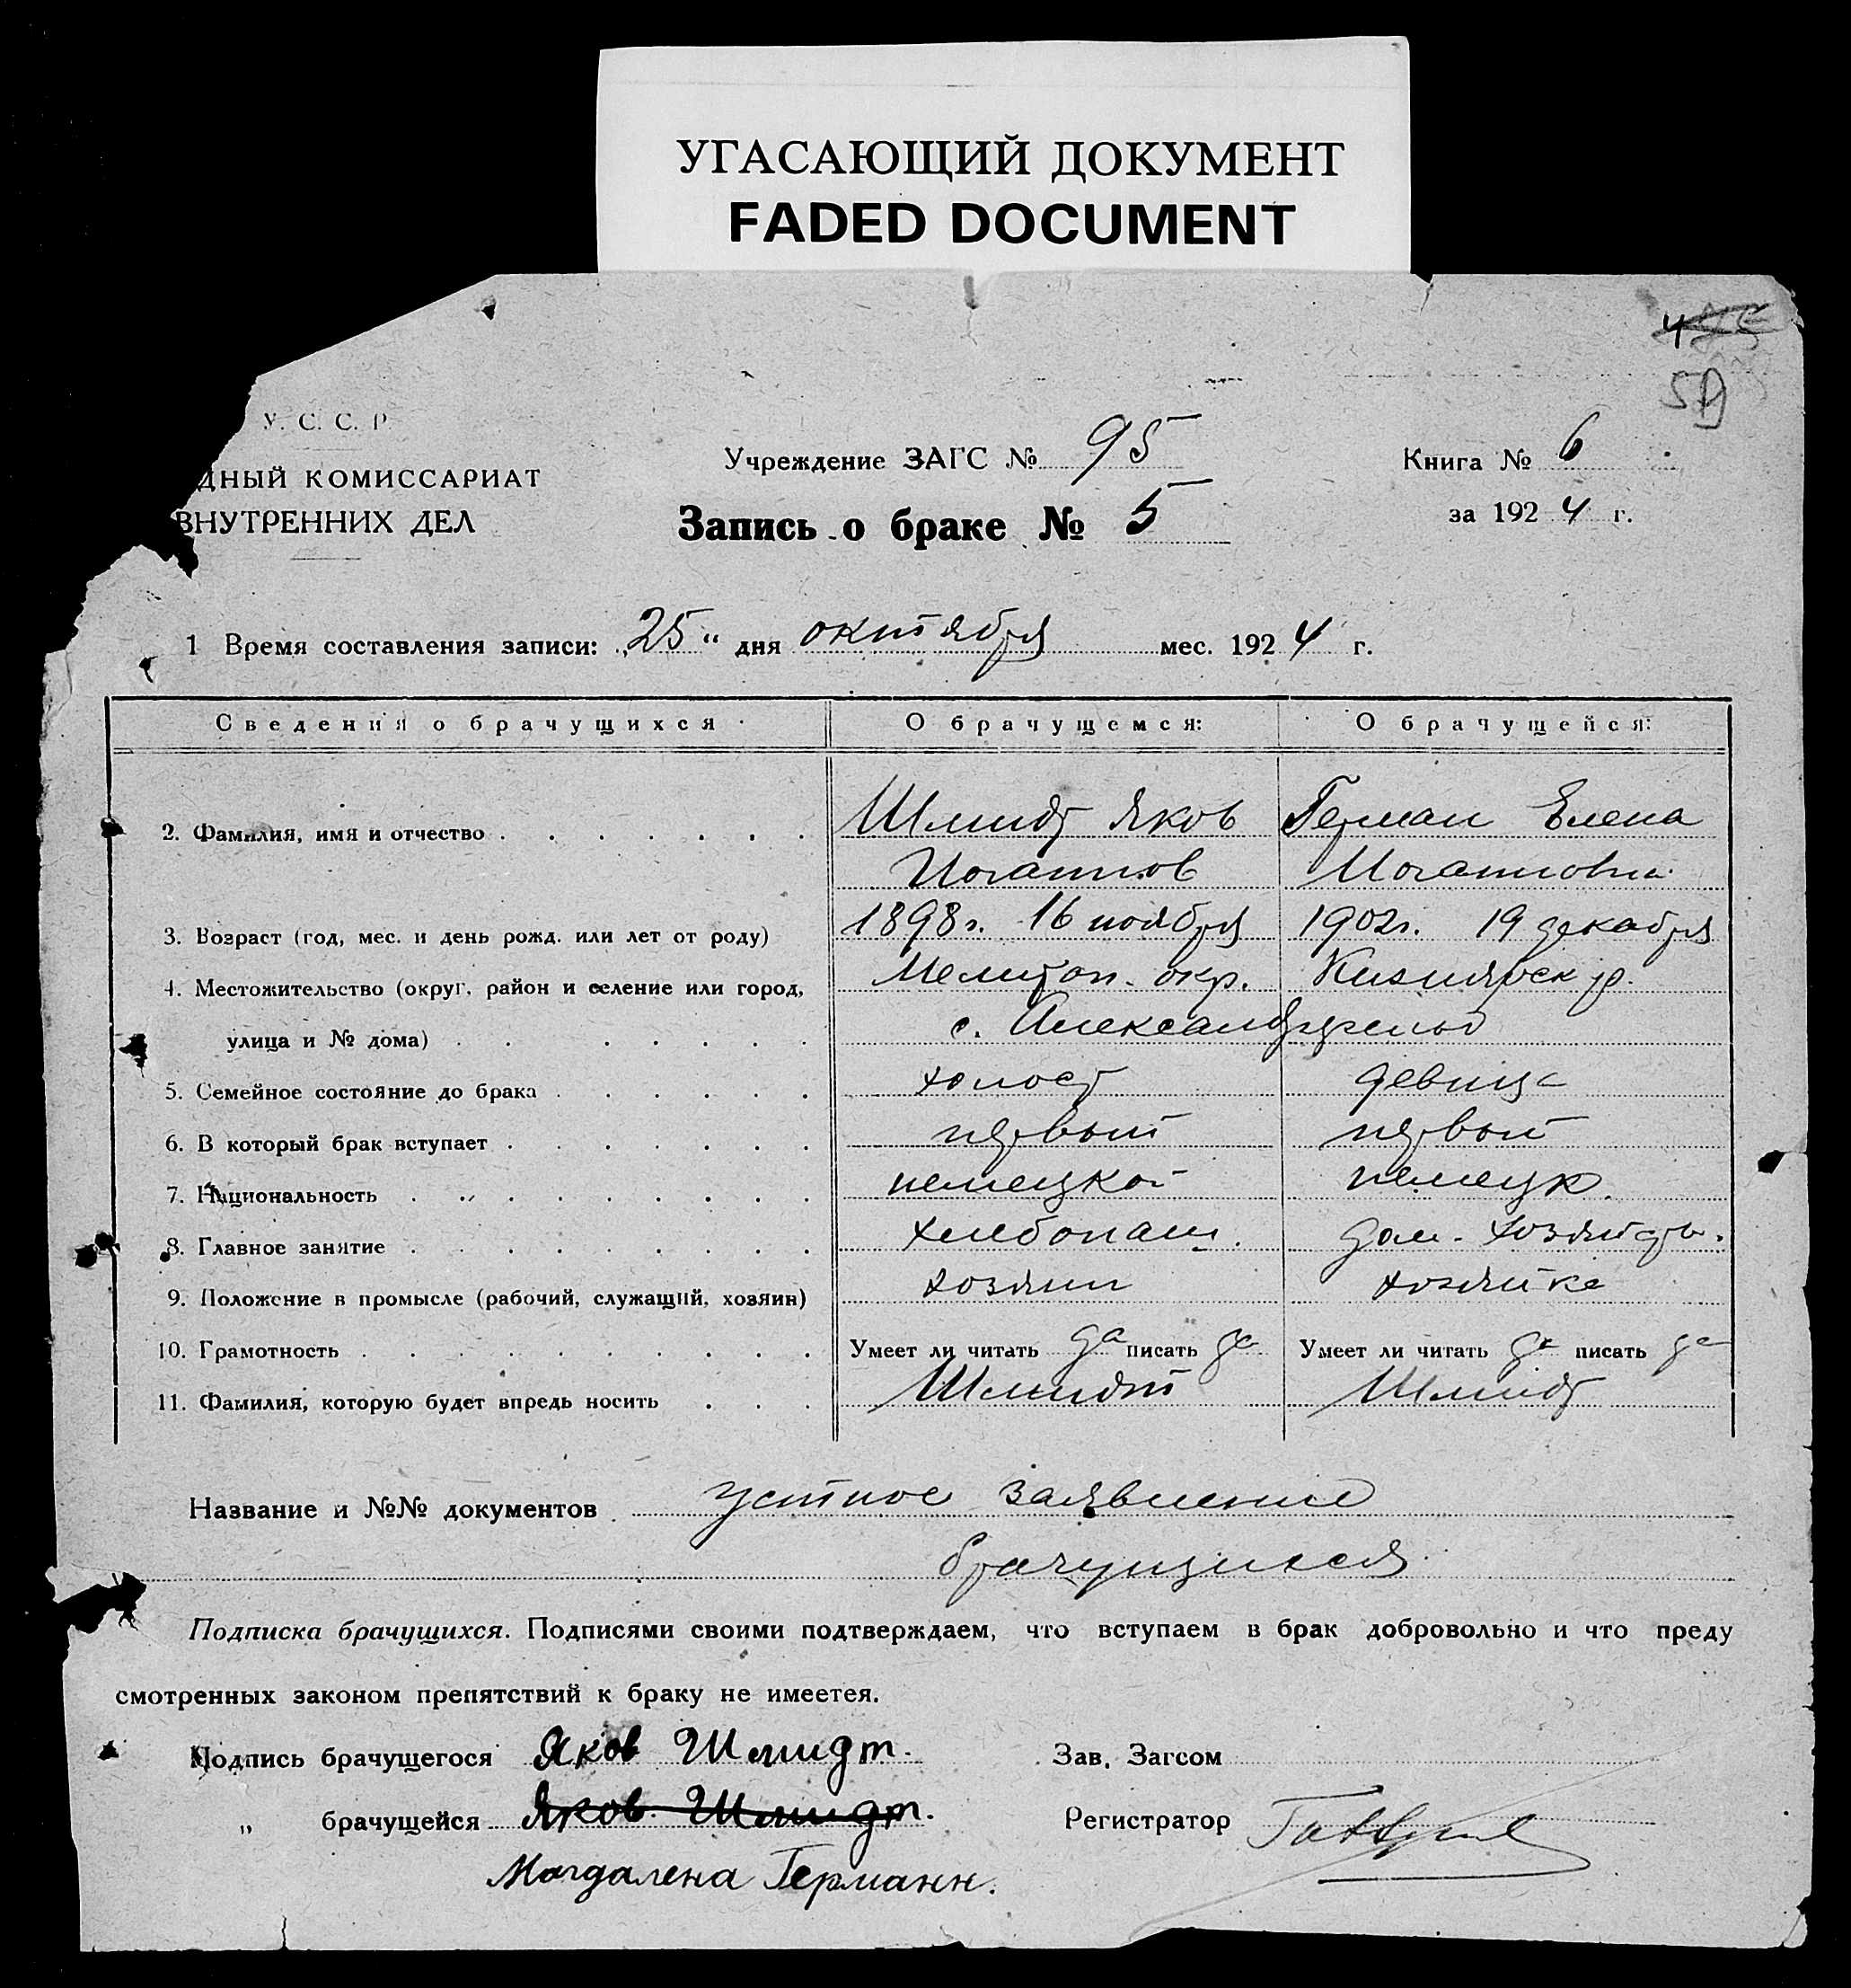 УГАСАЮЩИЙ ДОКУМЕНТ
FADED DOCUMENT
59
У. С. С. Р.
Учреждение ЗАГС № 95
Книга № 6
ДНЫЙ КОМИССАРИАТ
ВНУТРЕННИХ ДЕЛ
Запись о браке № 5
за 1924 г.
1 Время составления записи: „25" дня октября мес. 1924 г.
Сведения о брачущихся О брачущемся: О брачущейся:
2. Фамилия, имя и отчество Шмидт Яков Герман Елена
Иоганнов Иоганновна
3. Возраст (год, мес. и день рожд. или лет от роду) 1898 г. 16 ноября 1902 г. 19 декабря
4. Местожительство (округ, район и селение или город, Мелитоп. окр. Кизиярск р.
улица и № дома) с. Александрфельд
5. Семейное состояние до брака холост девица
6. В который брак вступает первый первый
7. Национальность немецкой немецк.
8. Главное занятие хлебопаш. дом. хозяйств.
9. Положение в промысле (рабочий, служащий, хозяин) хозяин хозяйка
10. Грамотность Умеет ли читать да писать да Умеет ли читать да писать да
11. Фамилия, которую будет впредь носить Шмидт Шмидт
Название и №№ документов устное заявление
брачущихся
Подписка брачущихся. Подписями своими подтверждаем, что вступаем в брак добровольно и что преду
смотренных законом препятствий к браку не имеется.
Подпись брачущегося Яков Шмидт. Зав. Загсом
„ брачущейся Яков Шмидт. Регистратор
Магдалена Германн.